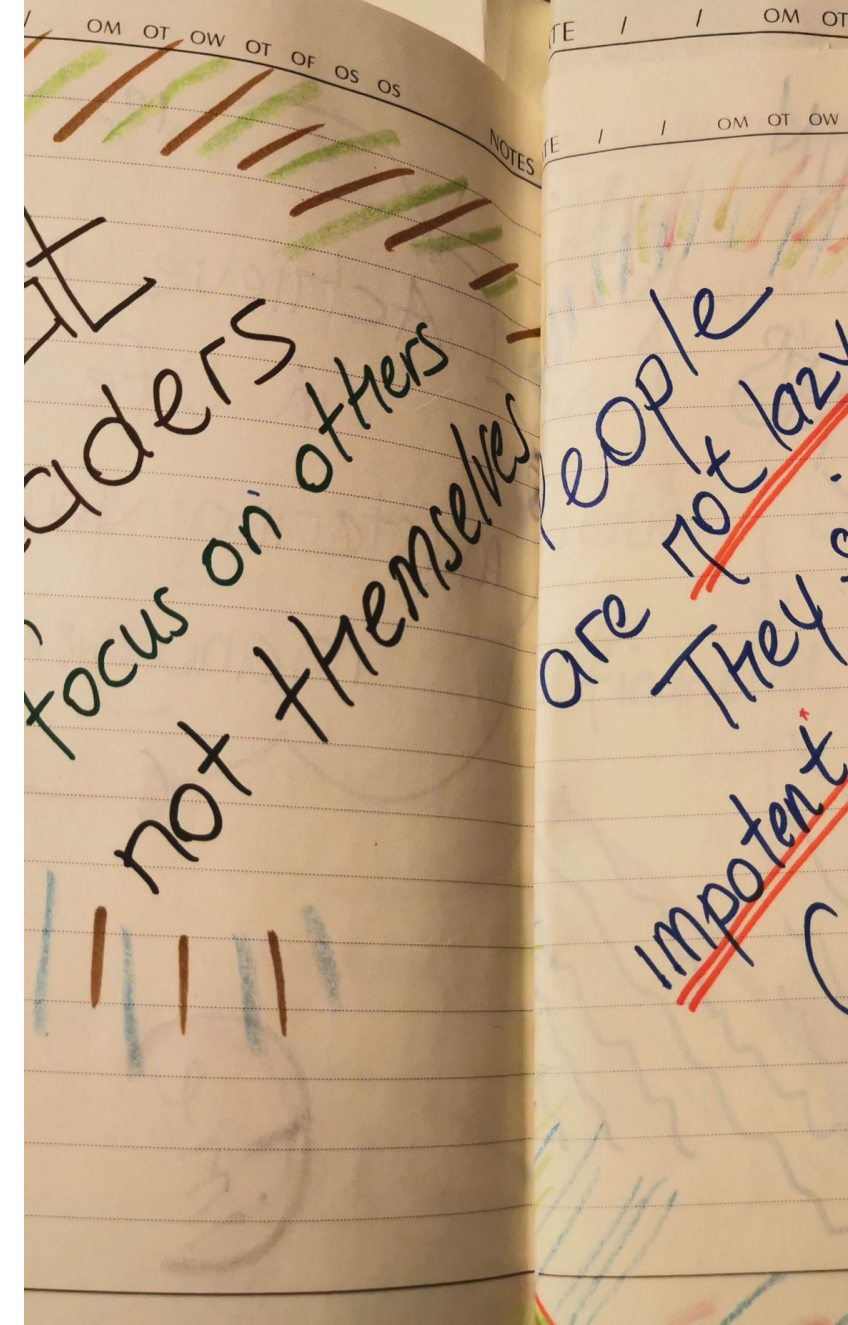 / OM OT OW OT OF OS OS
NOTES
aders
focus on others
not themselves
TE / / OM OT
TE / / OM OT OW
eople
are not lazy
They
impotent